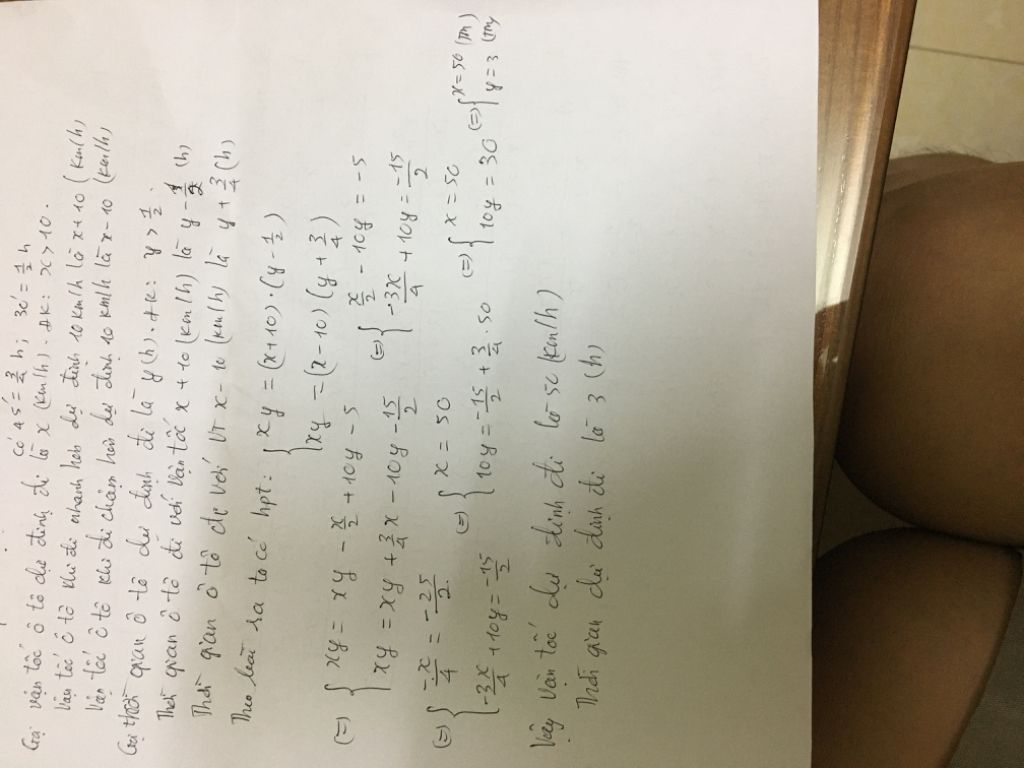 Có 45' = 3/4 h; 30' = 1/2 h
Gọi vận tốc ô tô dự định đi là x (km/h). ĐK: x > 10.
Vận tốc ô tô khi đi nhanh hơn dự định 10 km/h là x + 10 (km/h)
Vận tốc ô tô khi đi chậm hơn dự định 10 km/h là x - 10 (km/h)
Gọi thời gian ô tô dự định đi là y (h). ĐK: y > 1/2.
Thời gian ô tô đi với vận tốc x + 10 (km/h) là y - 1/2 (h)
Thời gian ô tô đi với VT x - 10 (km/h) là y + 3/4 (h)
Theo bài ra ta có hpt: { xy = (x+10).(y - 1/2)
{ xy = (x - 10)(y + 3/4)
(=) { xy = xy - x/2 + 10y - 5 (=) { x/2 - 10y = -5
{ xy = xy + 3/4 x - 10y - 15/2 { -3x/4 + 10y = -15/2
(=) { -x/4 = -25/2 (=) { x = 50 (=) { x = 50 (=) { x = 50 (tm)
{ -3x/4 + 10y = -15/2 { 10y = -15/2 + 3/4 . 50 { 10y = 30 { y = 3 (tm)
Vậy vận tốc dự định đi là 50 (km/h)
Thời gian dự định đi là 3 (h)